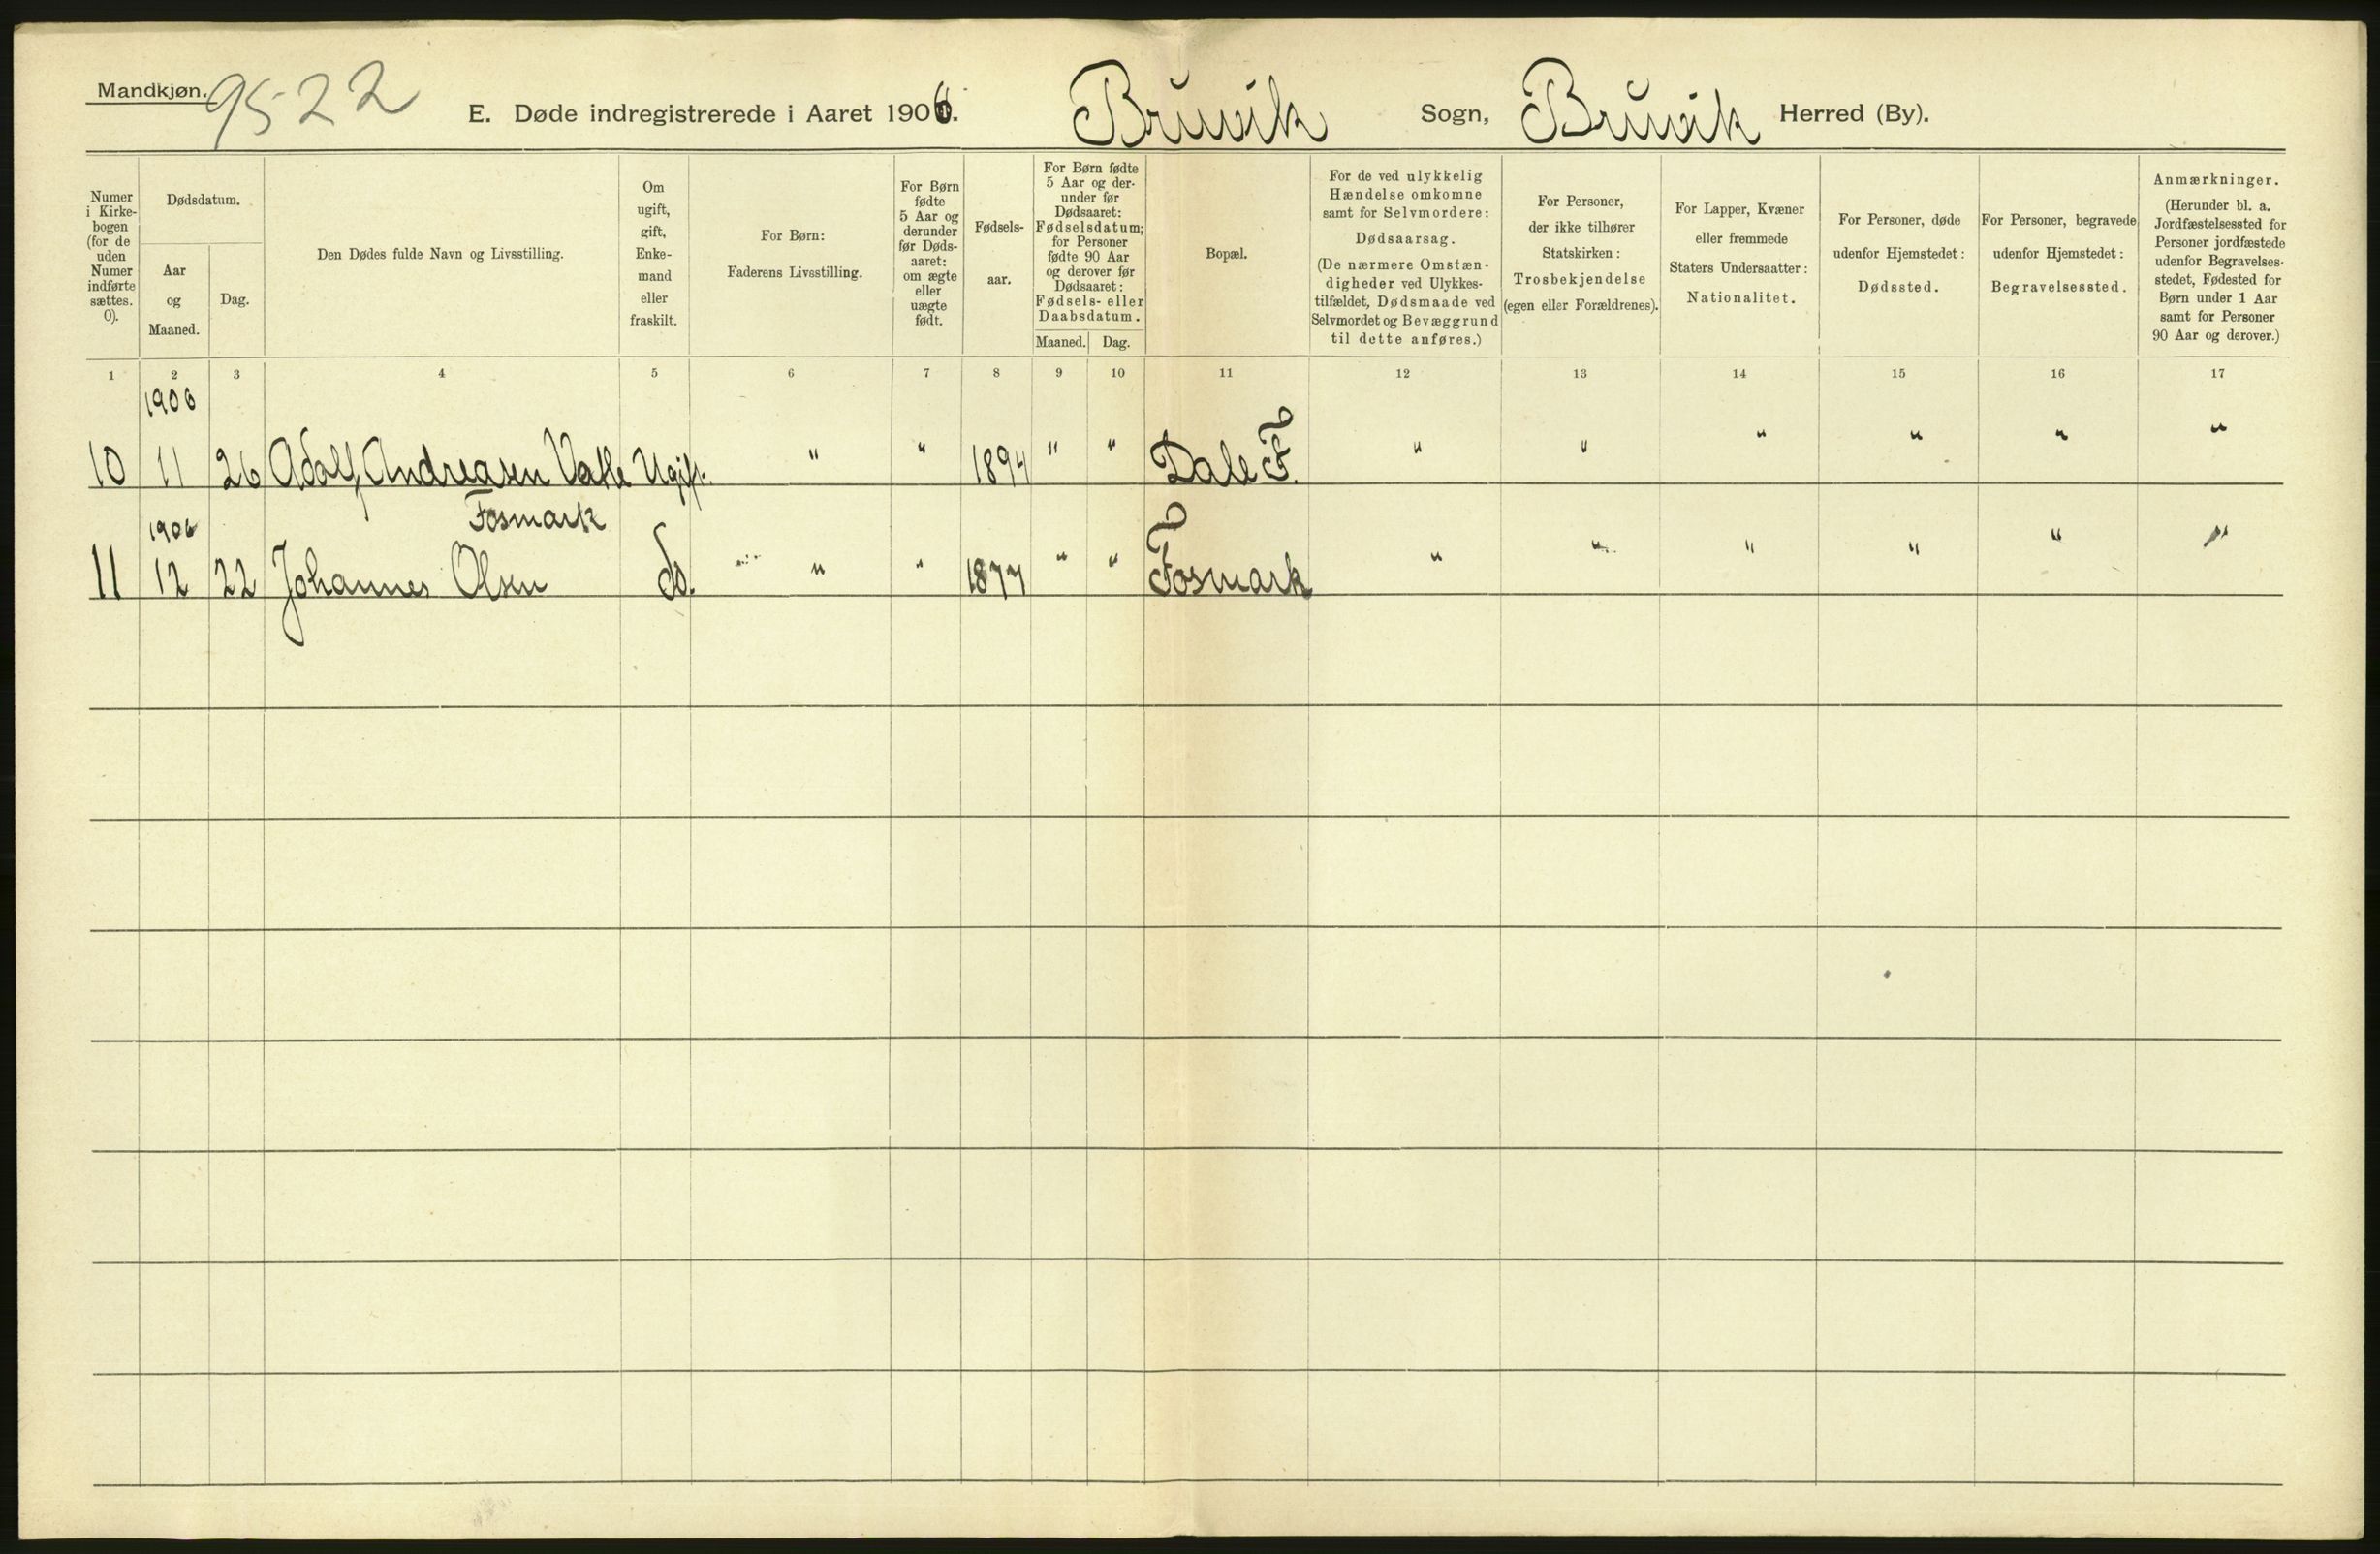 Mandkjøn. 9522
E. Døde indregistrerede i Aaret 1906. Bruvik Sogn, Bruvik Herred (By).
Numer
i Kirke-
bogen
(for de
uden
Numer
indførte
sættes.
0).
Dødsdatum.
Aar
og
Maaned.
Dag.
Den Dødes fulde Navn og Livsstilling.
Om
ugift,
gift,
Enke-
mand
eller
fraskilt.
For Børn:
Faderens Livsstilling.
For Børn
fødte
5 Aar og
derunder
før Døds-
aaret:
om ægte
eller
uægte
født.
Fødsels-
aar.
For Børn fødte
5 Aar og der-
under før
Dødsaaret:
Fødselsdatum;
for Personer
fødte 90 Aar
og derover før
Dødsaaret:
Fødsels- eller
Daabsdatum.
Maaned. Dag.
Bopæl.
For de ved ulykkelig
Hændelse omkomne
samt for Selvmordere:
Dødsaarsag.
(De nærmere Omstæn-
digheder ved Ulykkes-
tilfældet, Dødsmaade ved
Selvmordet og Bevæggrund
til dette anføres.)
For Personer,
der ikke tilhører
Statskirken:
Trosbekjendelse
(egen eller Forældrenes).
For Lapper, Kvæner
eller fremmede
Staters Undersaatter:
Nationalitet.
For Personer, døde
udenfor Hjemstedet:
Dødssted.
For Personer, begravede
udenfor Hjemstedet:
Begravelsessted.
Anmærkninger.
(Herunder bl. a.
Jordfæstelsessted for
Personer jordfæstede
udenfor Begravelses-
stedet, Fødested for
Børn under 1 Aar
samt for Personer
90 Aar og derover.)
1 2 3 4 5 6 7 8 9 10 11 12 13 14 15 16 17
1906
10 11 26 Adolf Andreasen Ugift. " " 1894 " " Dale F. " " " " " "
1906 Fosmark
11 12 22 Johannes Olsen do. " " 1877 " " Fosmark " " " " " "